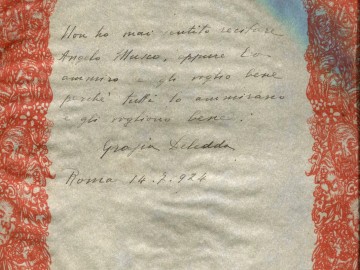 Non ho mai sentito recitare
Angelo Musco, eppure lo
ammiro e gli voglio bene
perché tutti lo ammirano
e gli vogliono bene!
Grazia Deledda
Roma 14.2.924